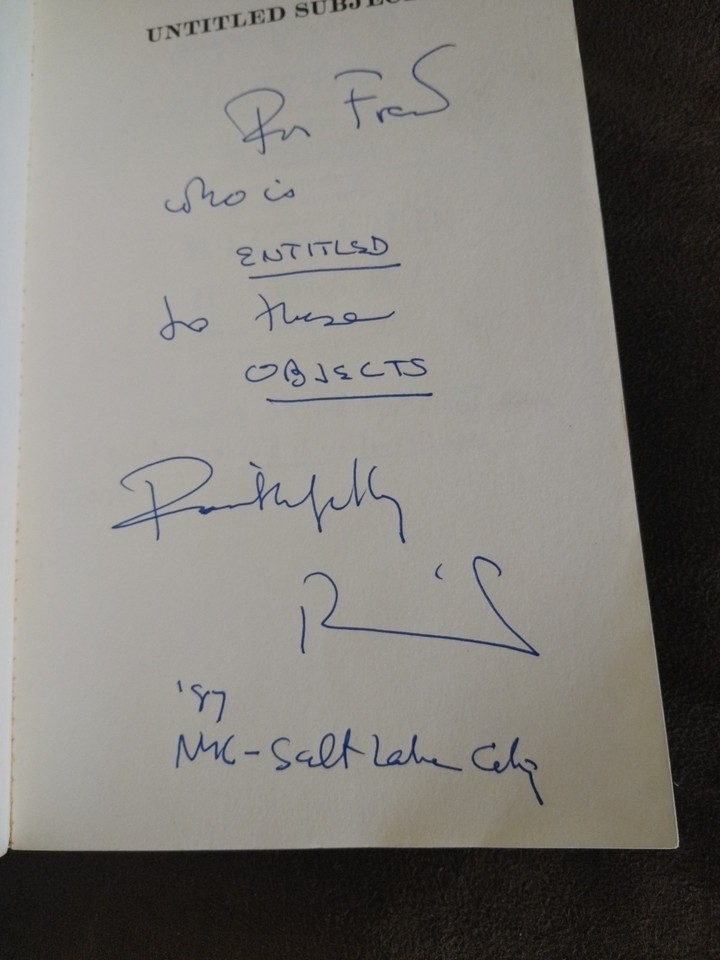 UNTITLED SUBJEC
For
who is
ENTITLED
to these
OBJECTS
Faithfully
'87
NYC - Salt Lake City